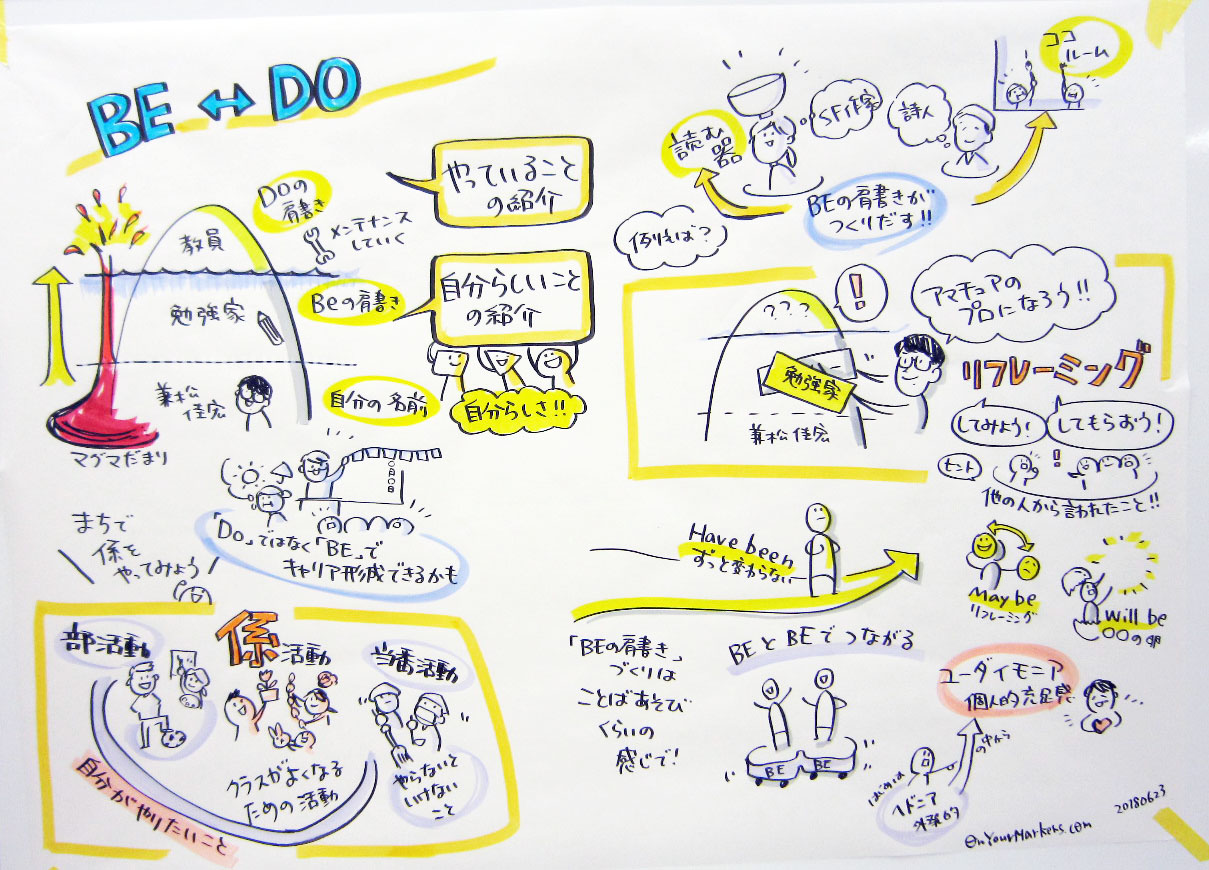 BE ↔ DO
DOの
肩書き
メンテナンス
していく
やっていること
の紹介
教員
勉強家
Beの肩書き
自分らしいこと
の紹介
兼松
佳宏
自分の名前
自分らしさ!!
マグマだまり
読む
器
SF作家
詩人
ココ
ルーム
BEの肩書きが
つくりだす!!
例えば?
???
!
アマチュアの
プロになろう!!
勉強家
兼松佳宏
リフレーミング
してみよう!
してもらおう!
ヒント
!
他の人から言われたこと!!
まちで
係を
やってみよう
〇月〇日
「Do」ではなく「BE」で
キャリア形成できるかも
部活動
係活動
当番活動
クラスがよくなる
ための活動
やらないと
いけない
こと
自分がやりたいこと
Have been
ずっと変わらない
May be
リフレーミング
will be
〇〇の卵
「BEの肩書き」
づくりは
ことばあそび
くらいの
感じで!
BEとBEでつながる
BE BE
ユーダイモニア
個人的充足感
の中から
はじめは
ヘドニア
外発的
OnYourMarkers.com
20180623